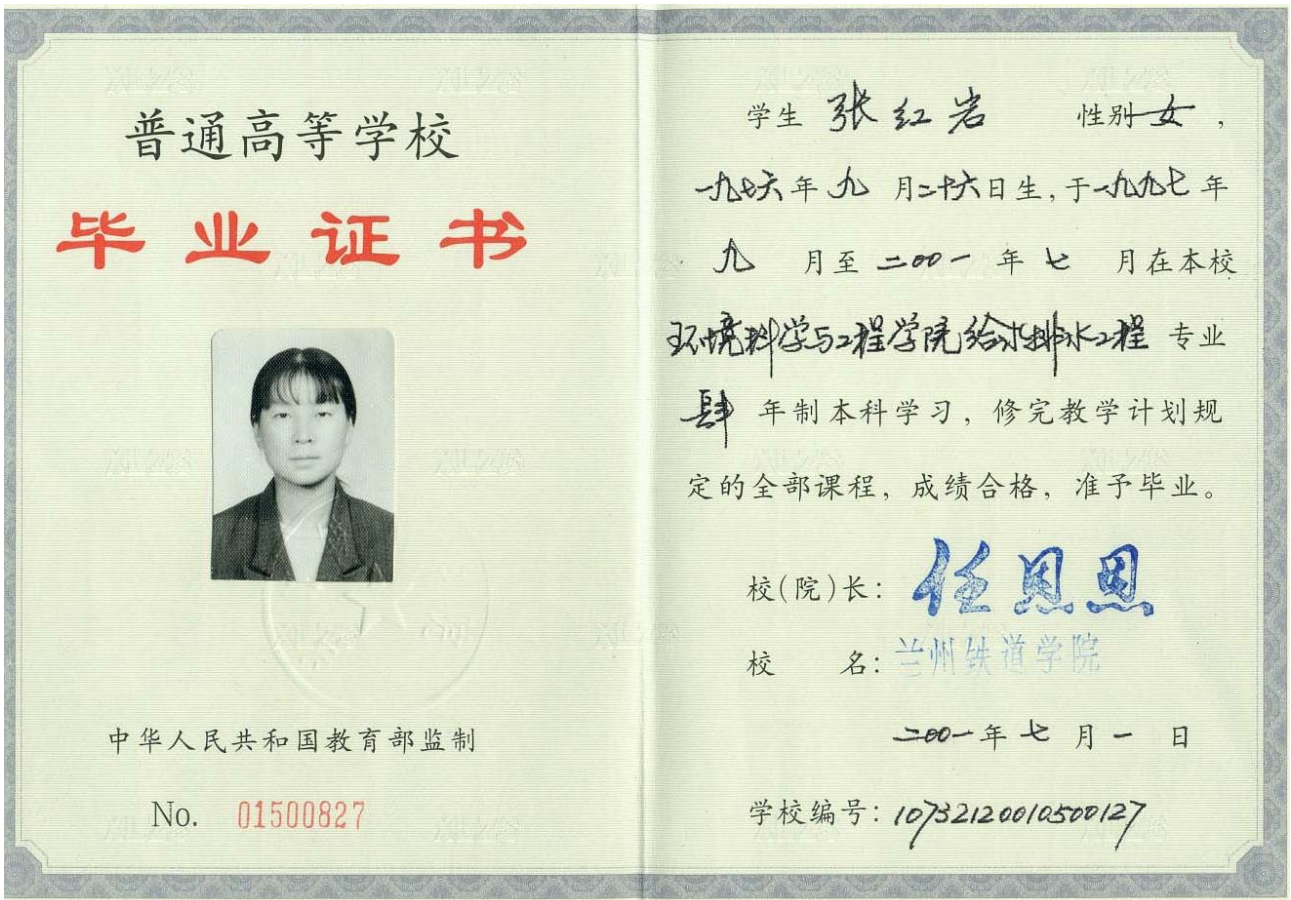 普通高等学校
毕业证书
中华人民共和国教育部监制
No. 01500827
学生 张红岩 性别 女，
一九七六年九月二十六日生，于一九九七年
九月至二〇〇一年七月在本校
环境科学与工程学院给水排水工程 专业
肆年制本科学习，修完教学计划规
定的全部课程，成绩合格，准予毕业。
校(院)长：任恩恩
校 名：兰州铁道学院
二〇〇一年七月一日
学校编号：10732120010500127